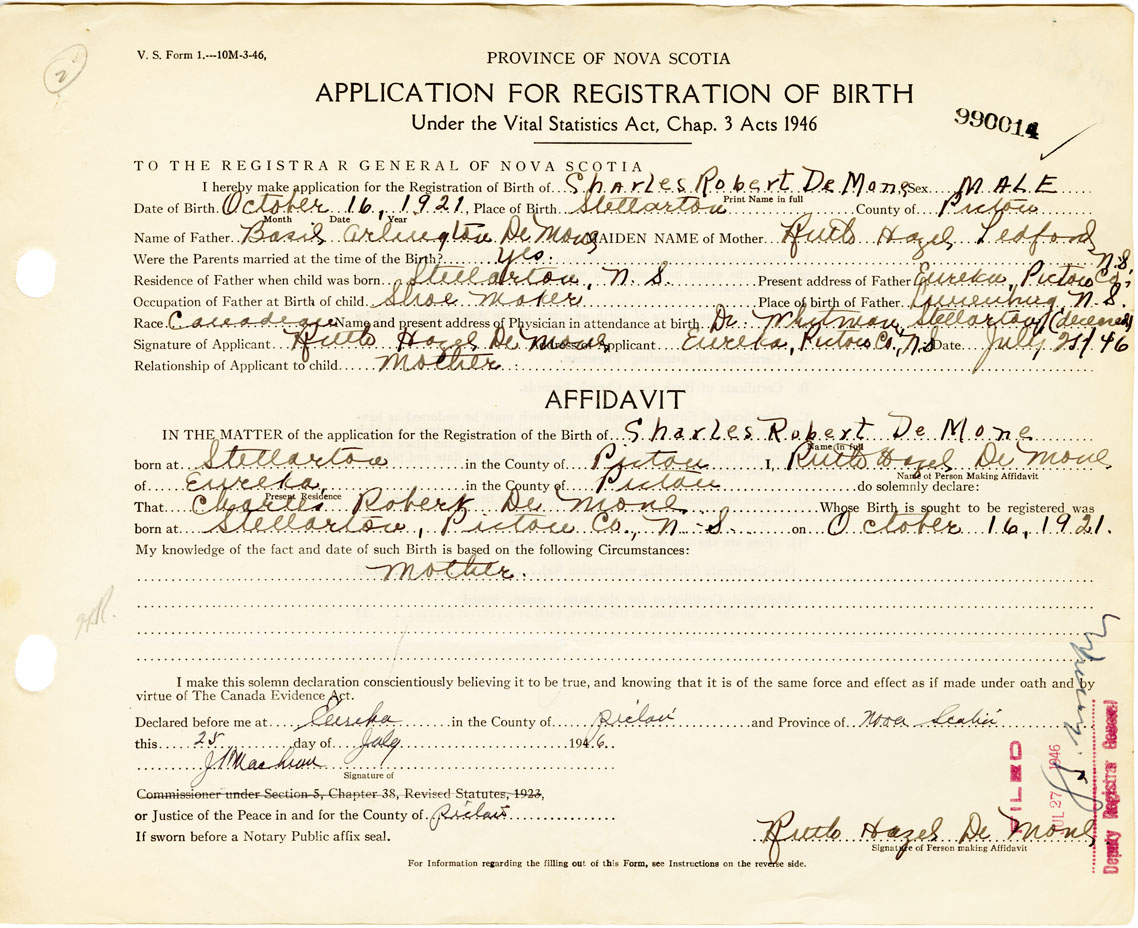 2
V. S. Form 1.---10M-3-46,
PROVINCE OF NOVA SCOTIA
APPLICATION FOR REGISTRATION OF BIRTH
Under the Vital Statistics Act, Chap. 3 Acts 1946
990014
TO THE REGISTRAR GENERAL OF NOVA SCOTIA
I hereby make application for the Registration of Birth of Charles Robert De Mone Sex MALE
Print Name in full
Date of Birth October 16, 1921, Place of Birth Stellarton County of Pictou
Month Date Year
Name of Father Basil Arlington De Mone MAIDEN NAME of Mother Ruth Hazel Ledford
Were the Parents married at the time of the Birth? Yes.
Residence of Father when child was born Stellarton, N. S. Present address of Father Eureka, Pictou Co., N.S.
Occupation of Father at Birth of child Shoe Maker Place of birth of Father Lunenburg N. S.
Race Canadian Name and present address of Physician in attendance at birth Dr Whitman, Stellarton (deceased)
Signature of Applicant Ruth Hazel De Mone Address of Applicant Eureka, Pictou Co., N.S Date July 25/46
Relationship of Applicant to child Mother
AFFIDAVIT
IN THE MATTER of the application for the Registration of the Birth of Charles Robert De Mone
Name in full
born at Stellarton in the County of Pictou I, Ruth Hazel De Mone
Name of Person Making Affidavit
of Eureka, in the County of Pictou do solemnly declare:
Present Residence
That Charles Robert De Mone Whose Birth is sought to be registered was
born at Stellarton, Pictou Co., N-S. on October 16, 1921.
My knowledge of the fact and date of such Birth is based on the following Circumstances:
Mother.
I make this solemn declaration conscientiously believing it to be true, and knowing that it is of the same force and effect as if made under oath and by
virtue of The Canada Evidence Act.
Declared before me at Eureka in the County of Pictou and Province of Nova Scotia
this 25 day of July 1946.
Signature of
Commissioner under Section 5, Chapter 38, Revised Statutes, 1923,
or Justice of the Peace in and for the County of Pictou
If sworn before a Notary Public affix seal.
Ruth Hazel De Mone
Signature of Person making Affidavit
For Information regarding the filling out of this Form, see Instructions on the reverse side.
FILED
JUL 27 1946
Deputy Registrar General